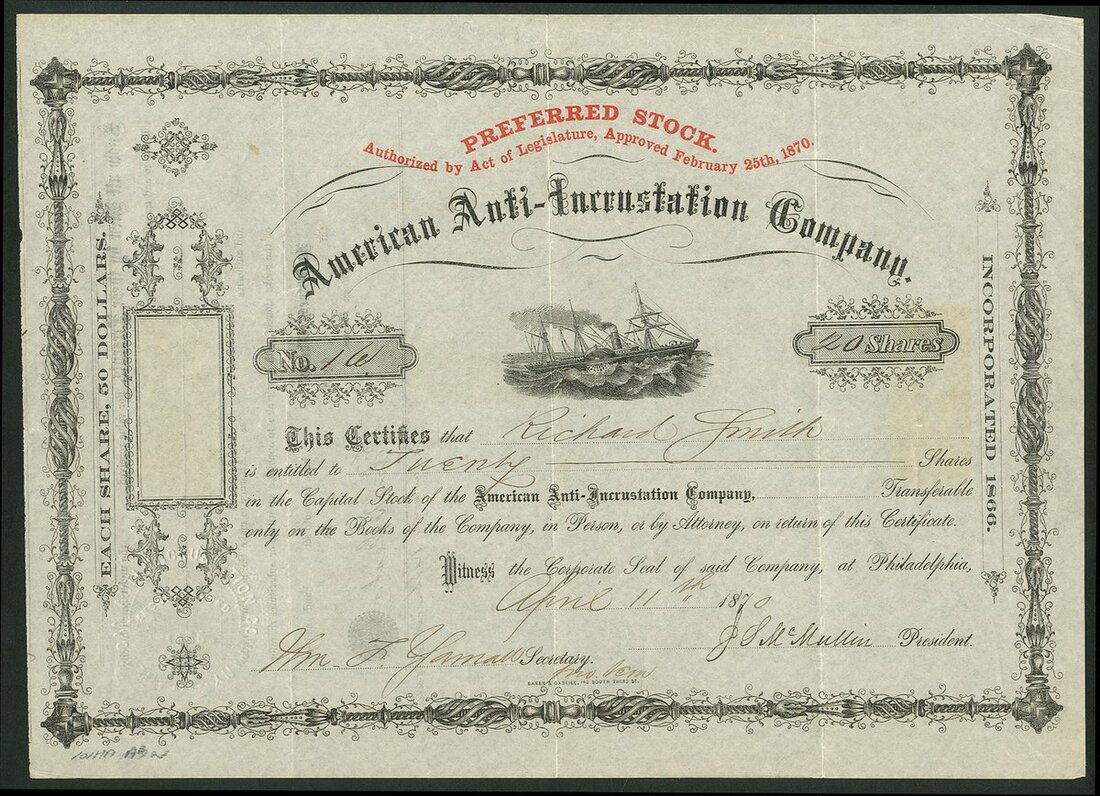 PREFERRED STOCK.
Authorized by Act of Legislature, Approved February 25th, 1870.
American Anti-Incrustation Company.
EACH SHARE, 50 DOLLARS.
INCORPORATED 1866.
No. 16
20 Shares
This Certifies that Richard Smith
is entitled to Twenty Shares
in the Capital Stock of the American Anti-Incrustation Company, Transferable
only on the Books of the Company, in Person, or by Attorney, on return of this Certificate.
Witness the Corporate Seal of said Company, at Philadelphia,
April 11th 1870
Wm. F. Yarnall Secretary.
pro tem
J S McMullin President.